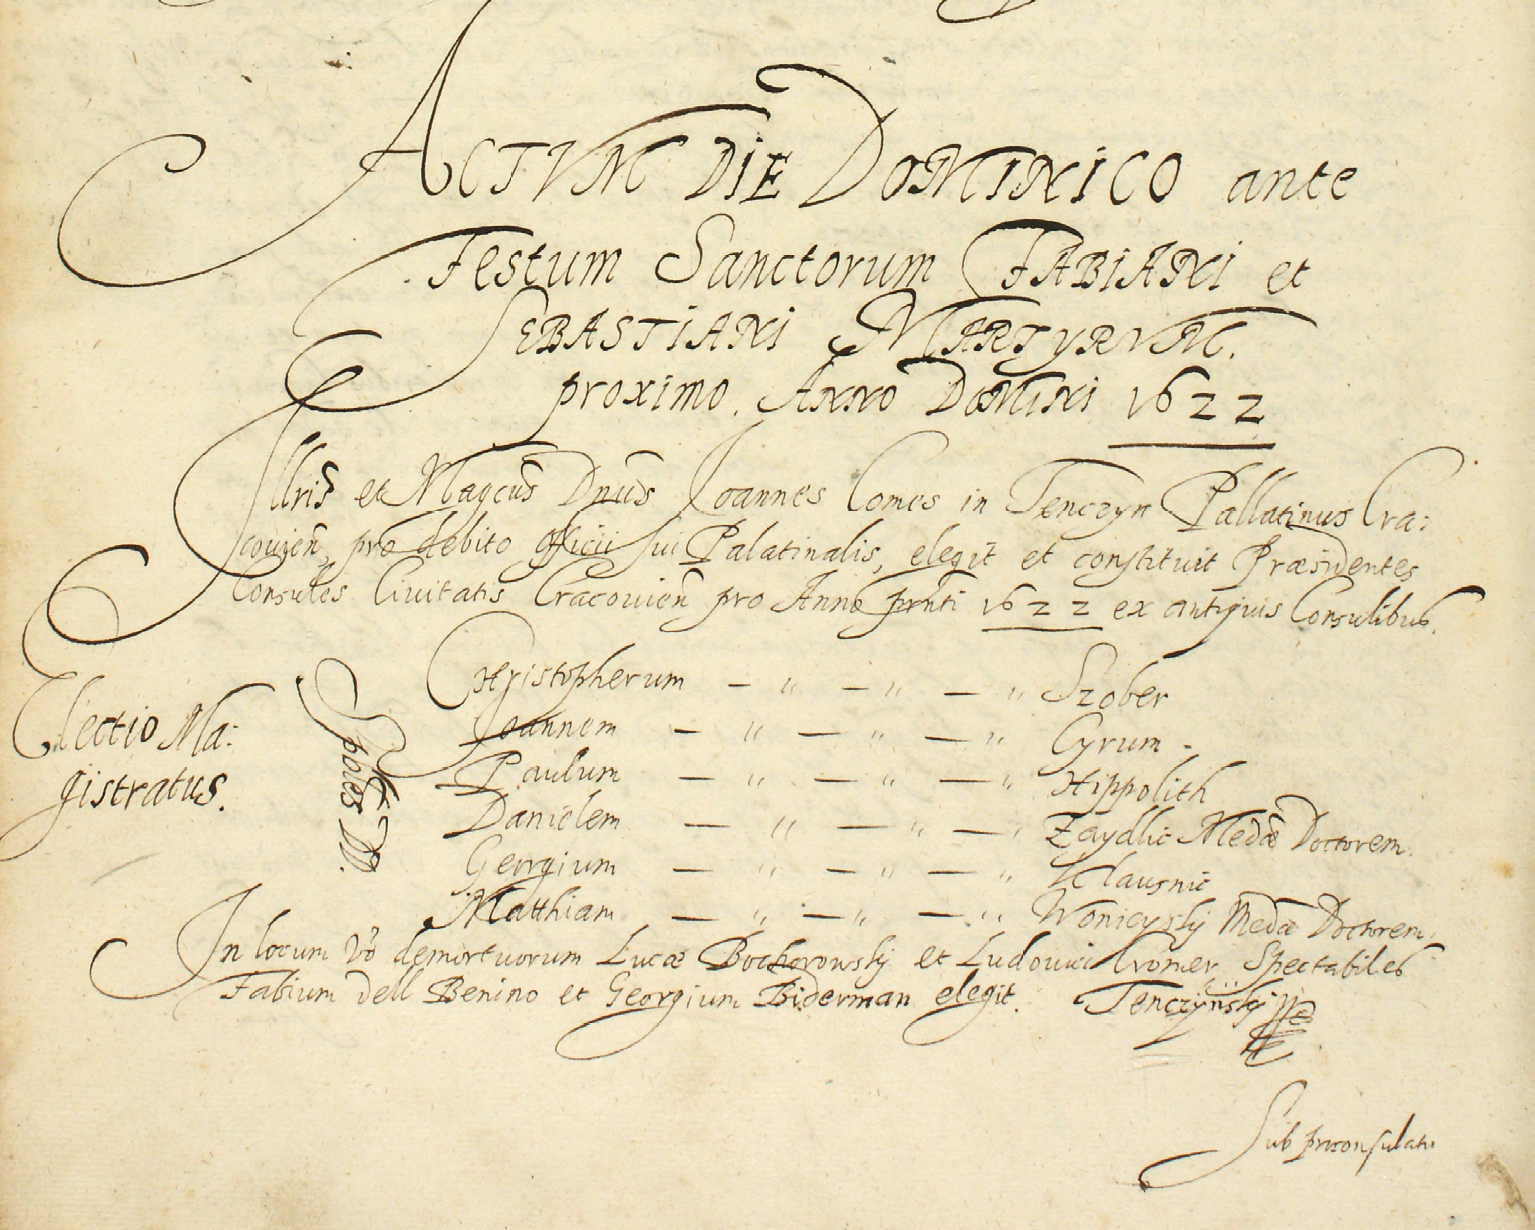 ACTVM DIE DOMINICO ante
Festum Sanctorum FABIANI et
SEBASTIANI MARTYRVM.
proximo. ANNO DOMINI 1622
Illris et Magcus Dnus Joannes Comes in Tenczyn Pallatinus Cra:
couien, pro debito officii sui Palatinalis, elegit et constituit Præsidentes
Consules Ciuitatis Cracouien pro Anno prnti 1622 ex antiquis Consulibus.
Electio Ma:
gistratus.
Spbles DD.
Christopherum — " — " — " Szober
Joannem — " — " — " Cyrum.
Paulum — " — " — " Hippolith
Danielem — " — " — " Zaydlic Medæ Doctorem.
Georgium — " — " — " Klausnic
Matthiam — " — " — " Wonieyskj Medæ Doctorem.
In locum Vo demortuorum Lucæ Bochorowskj et Ludouici Cromer Spectabiles
Fabium dell Benino et Georgium Biderman elegit. Tenczÿnskj
Sub prconsulatu